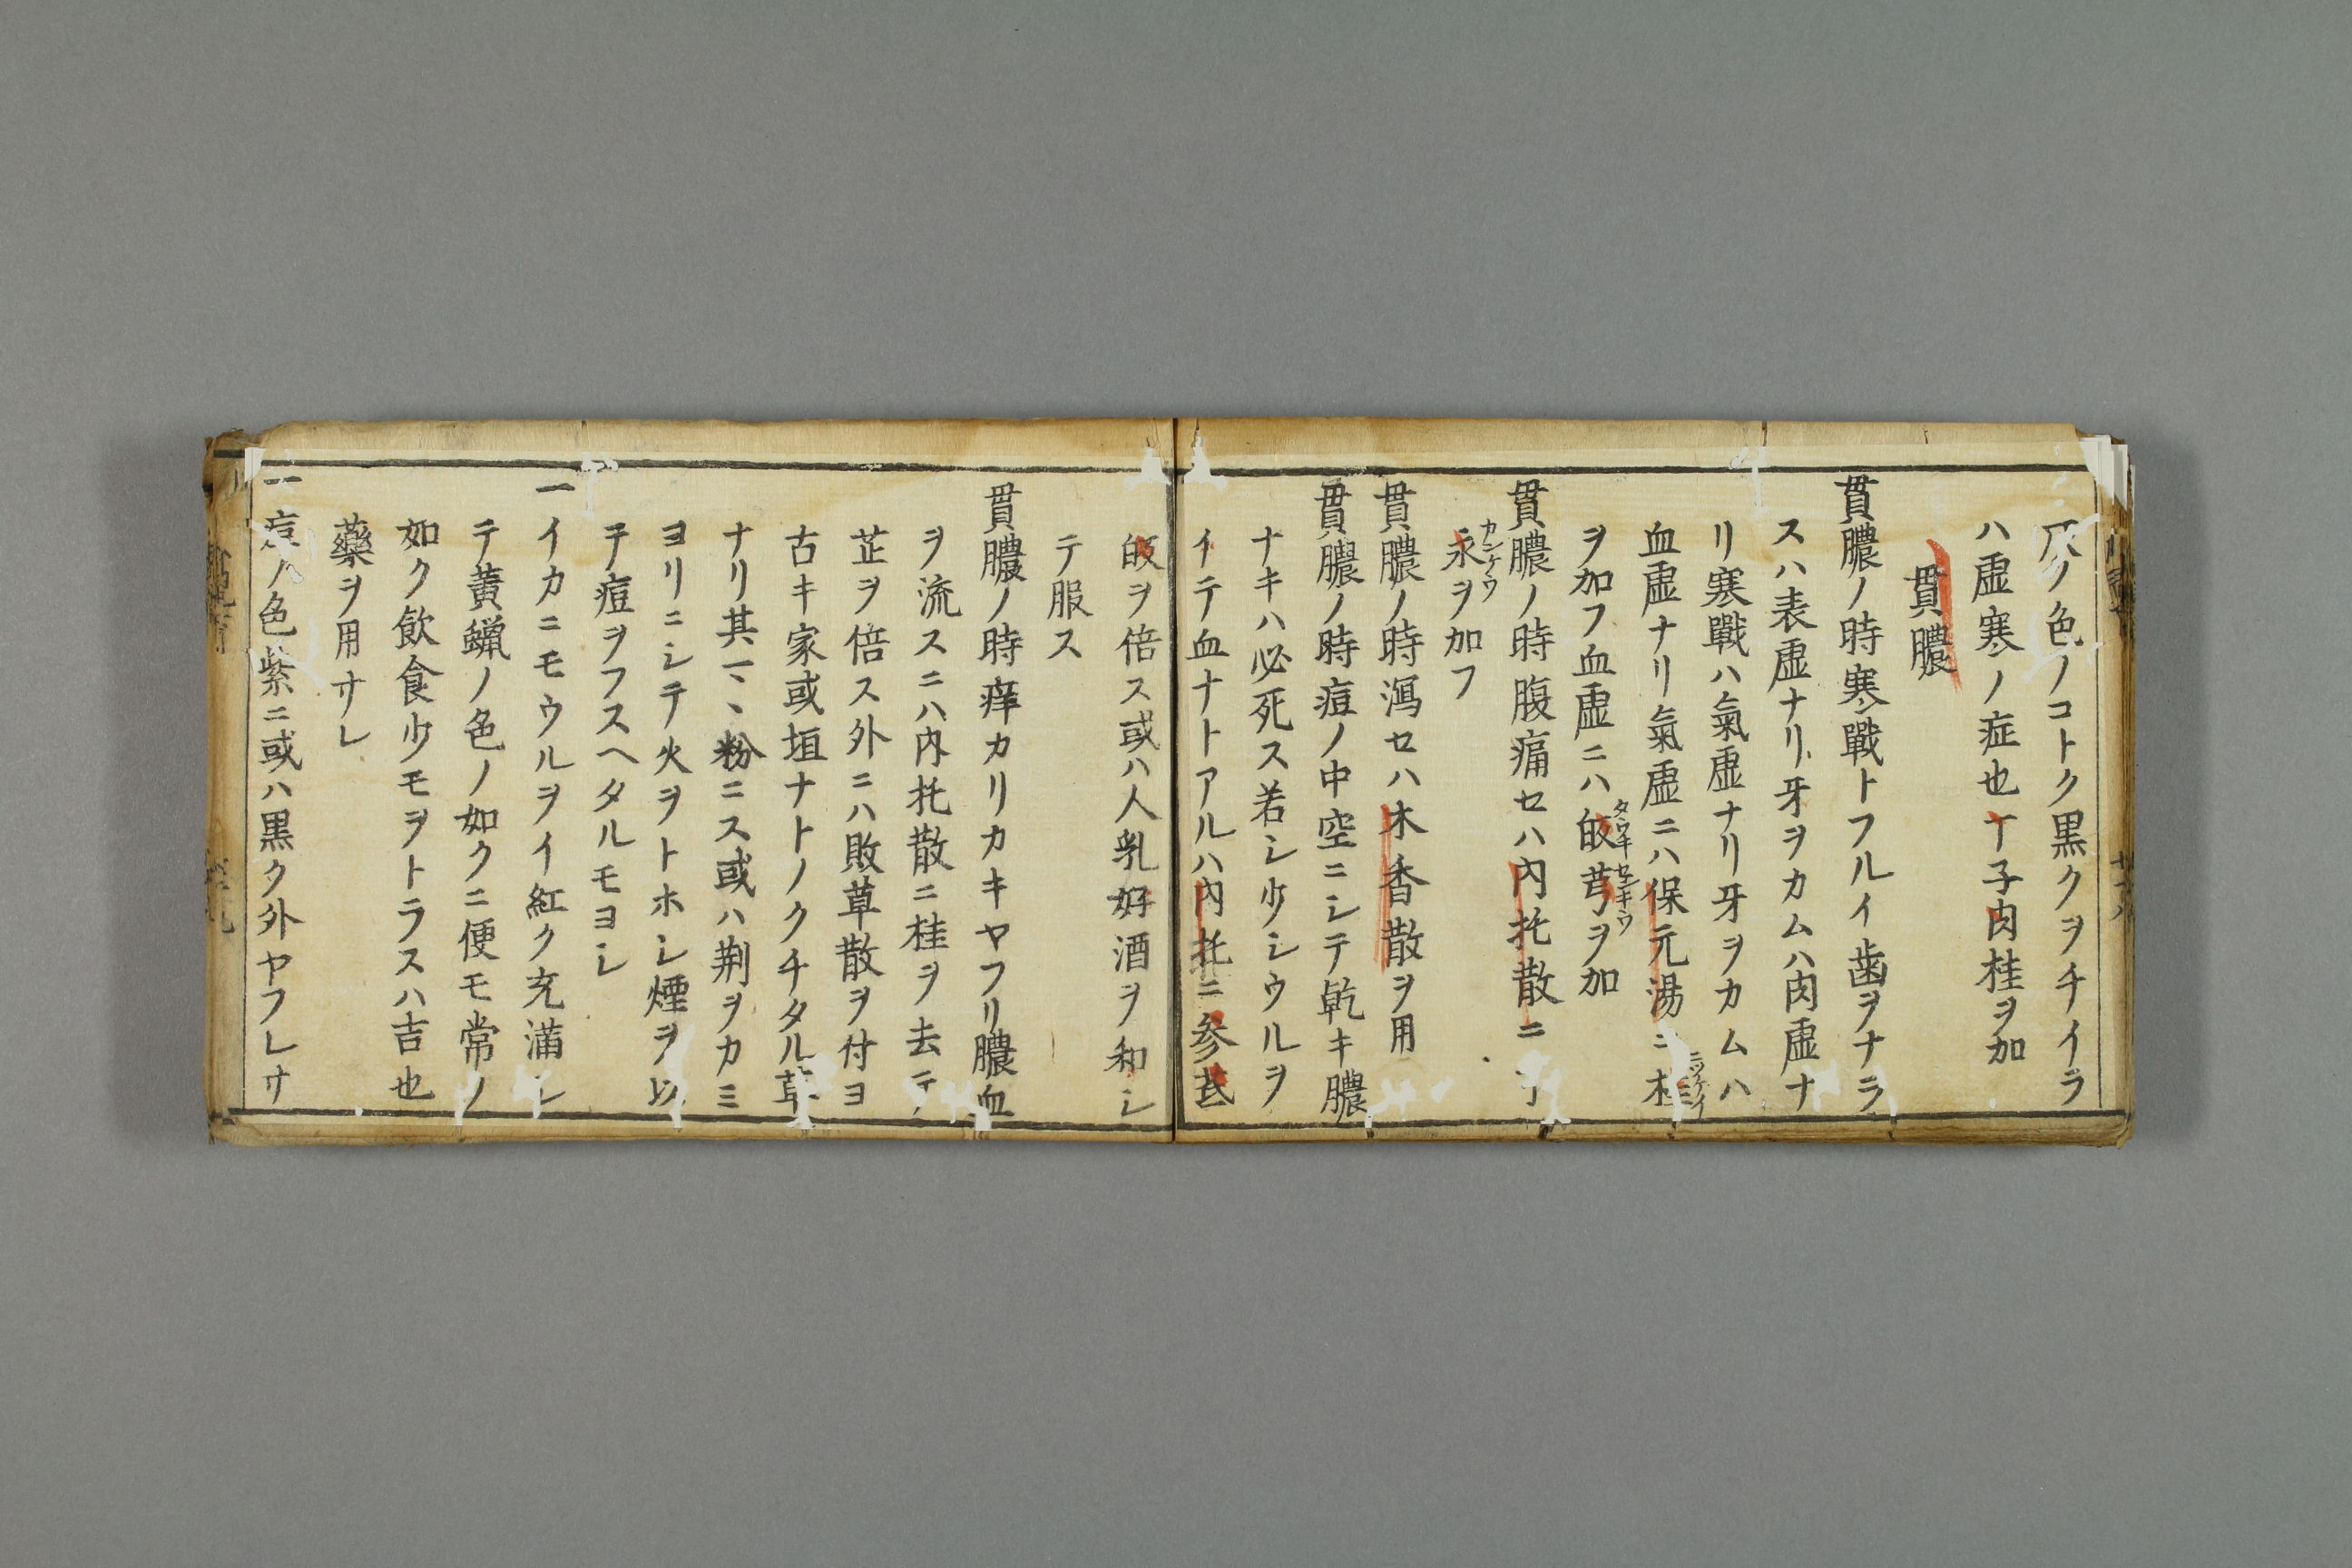 灰ノ色ノコトク黒クヲチイラ
ハ虚寒ノ症也丁子肉桂ヲ加
貫膿
貫膿ノ時寒戰トフルイ歯ヲナラ
スハ表虚ナリ牙ヲカムハ肉虚ナ
リ寒戰ハ氣虚ナリ牙ヲカムハ
血虚ナリ氣虚ニハ保元湯ニ桂
ニツケイ
ヲ加フ血虚ニハ皈芎ヲ加
タウキ センキウ
貫膿ノ時腹痛セハ内托散ニ
カンケウ
永ヲ加フ
貫膿ノ時瀉セハ木香散ヲ用
貫膿ノ時痘ノ中空ニシテ乾キ膿
ナキハ必死ス若シ少シウルヲ
イテ血ナトアルハ内托ニ参芪
皈ヲ倍ス或ハ人乳好酒ヲ和シ
テ服ス
貫膿ノ時痒カリカキヤフリ膿血
ヲ流スニハ内托散ニ桂ヲ去テ
芷ヲ倍ス外ニハ敗草散ヲ付ヨ
古キ家或垣ナトノクチタル草
ナリ其一ヽ粉ニス或ハ荆ヲカミ
ヨリニシテ火ヲトホシ煙ヲ以
テ痘ヲフスヘタルモヨシ
一イカニモウルヲイ紅ク充滿シ
テ黄蝋ノ色ノ如クニ便モ常ノ
如ク飲食少モヲトラスハ吉也
藥ヲ用サレ
一痘ノ色紫ニ或ハ黒ク外ヤフレサ